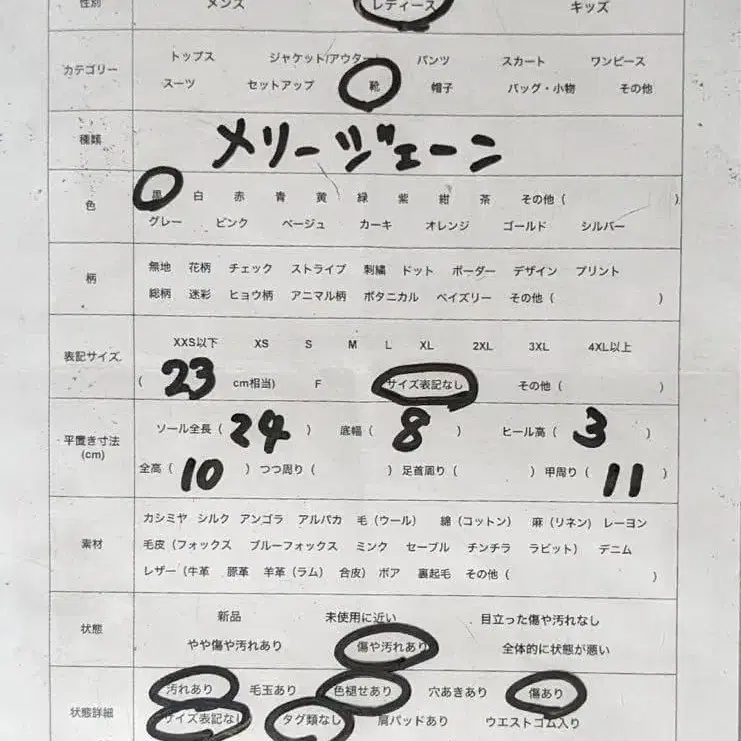 性別 メンズ レディース キッズ
トップス ジャケット/アウター パンツ スカート ワンピース
カテゴリー
スーツ セットアップ 靴 帽子 バッグ・小物 その他
種類 メリージェーン
黒 白 赤 青 黄 緑 紫 紺 茶 その他 ( )
色
グレー ピンク ベージュ カーキ オレンジ ゴールド シルバー
無地 花柄 チェック ストライプ 刺繍 ドット ボーダー デザイン プリント
柄
総柄 迷彩 ヒョウ柄 アニマル柄 ボタニカル ペイズリー その他 ( )
XXS以下 XS S M L XL 2XL 3XL 4XL以上
表記サイズ
( 23 cm相当) F サイズ表記なし その他 ( )
ソール全長 ( 24 ) 底幅 ( 8 ) ヒール高 ( 3 )
平置き寸法
(cm)
全高 ( 10 ) つつ周り ( ) 足首周り ( ) 甲周り ( 11 )
カシミヤ シルク アンゴラ アルパカ 毛 (ウール) 綿 (コットン) 麻 (リネン) レーヨン
素材 毛皮 (フォックス ブルーフォックス ミンク セーブル チンチラ ラビット) デニム
レザー (牛革 豚革 羊革 (ラム) 合皮) ボア 裏起毛 その他 ( )
新品 未使用に近い 目立った傷や汚れなし
状態
やや傷や汚れあり 傷や汚れあり 全体的に状態が悪い
汚れあり 毛玉あり 色褪せあり 穴あきあり 傷あり
状態詳細
サイズ表記なし タグ類なし 肩パッドあり ウエストゴム入り